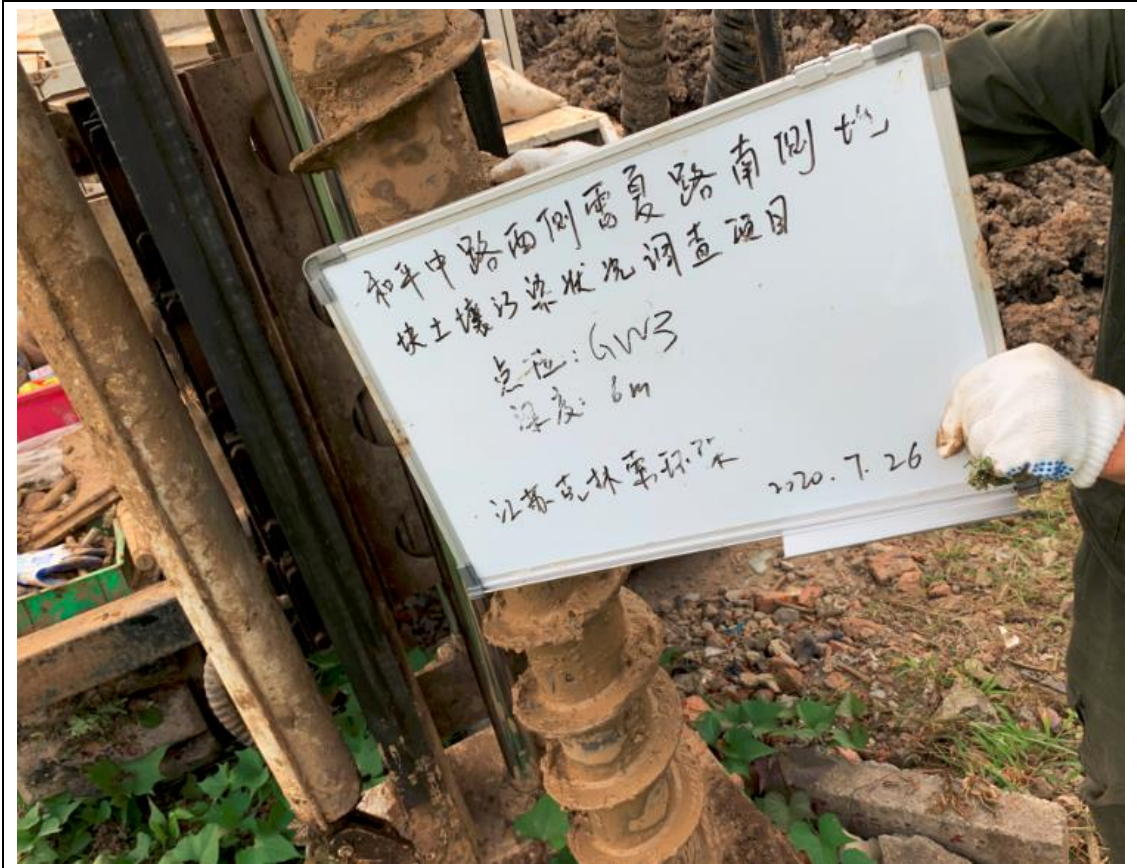 和平中路西侧雷夏路南侧地
块土壤污染状况调查项目
点位：GW3
深度：6m
江苏克林
2020.7.26